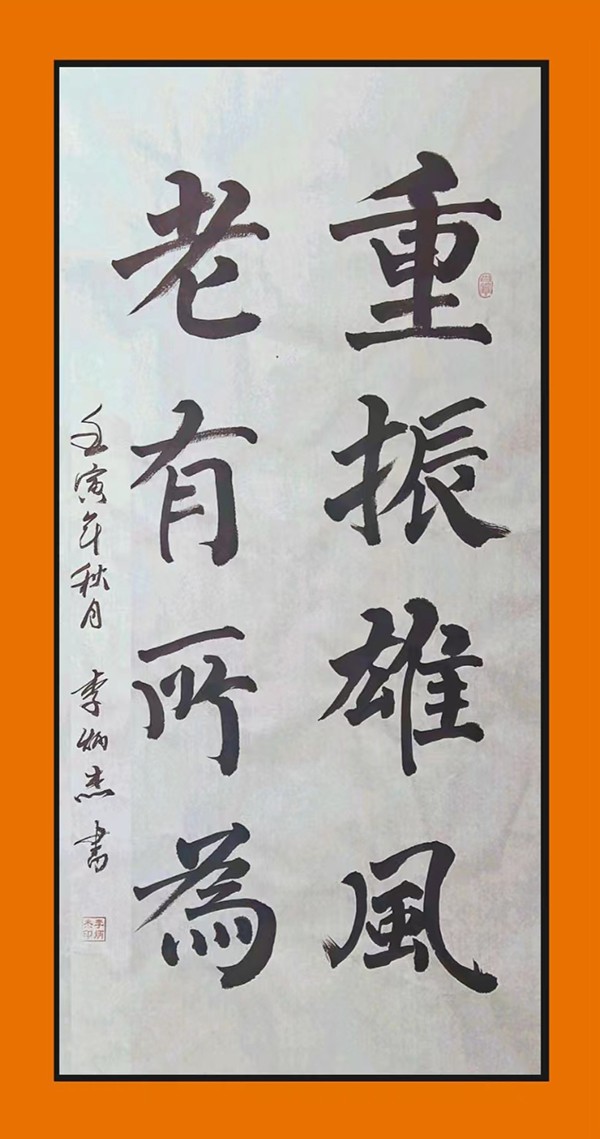 重振雄風
老有所為
壬寅年秋月 李炳杰書
李炳杰印